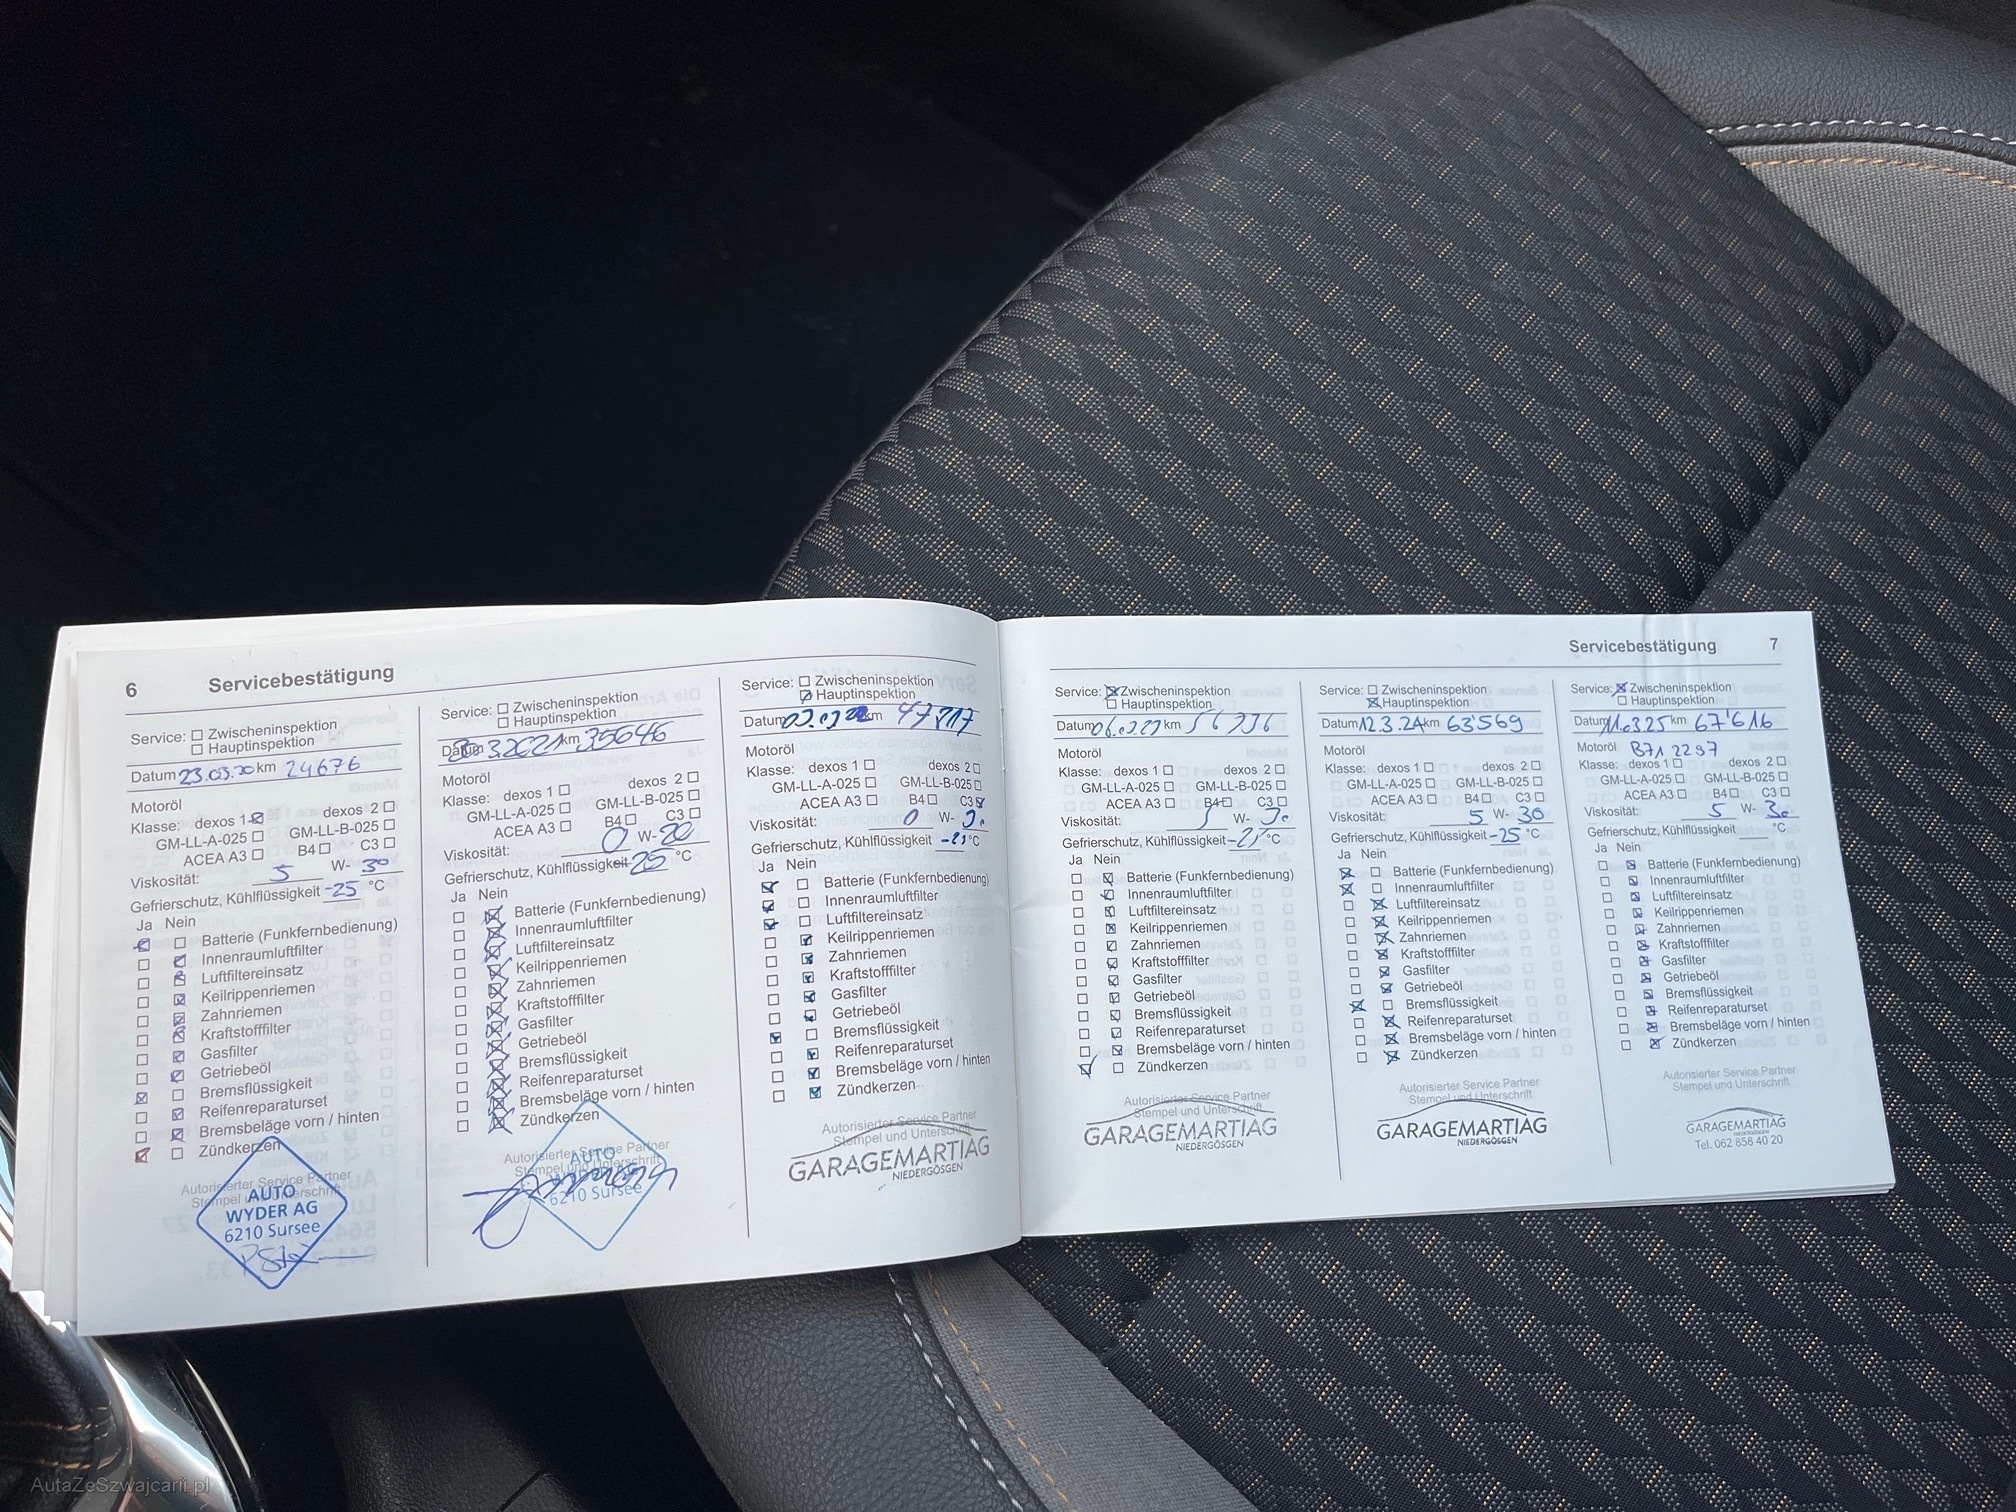 6 Servicebestätigung
Service: ☐ Zwischeninspektion
☐ Hauptinspektion
Datum 23.03.20 km 24676
Motoröl
Klasse: dexos 1 ☒ dexos 2 ☐
GM-LL-A-025 ☐ GM-LL-B-025 ☐
ACEA A3 ☐ B4 ☐ C3 ☐
Viskosität: 5 W- 30
Gefrierschutz, Kühlflüssigkeit -25 °C
Ja Nein
☒ ☐ Batterie (Funkfernbedienung)
☐ ☒ Innenraumluftfilter
☐ ☒ Luftfiltereinsatz
☐ ☒ Keilrippenriemen
☐ ☒ Zahnriemen
☐ ☒ Kraftstofffilter
☐ ☒ Gasfilter
☐ ☒ Getriebeöl
☒ ☐ Bremsflüssigkeit
☐ ☒ Reifenreparaturset
☐ ☒ Bremsbeläge vorn / hinten
☒ ☐ Zündkerzen
Autorisierter Service Partner
Stempel und Unterschrift
AUTO
WYDER AG
6210 Sursee
Service: ☐ Zwischeninspektion
☐ Hauptinspektion
Datum 3.2021 km 35646
Motoröl
Klasse: dexos 1 ☐ dexos 2 ☐
GM-LL-A-025 ☐ GM-LL-B-025 ☐
ACEA A3 ☐ B4 ☐ C3 ☐
Viskosität: 0 W- 20
Gefrierschutz, Kühlflüssigkeit -25 °C
Ja Nein
☐ ☒ Batterie (Funkfernbedienung)
☐ ☒ Innenraumluftfilter
☐ ☒ Luftfiltereinsatz
☐ ☒ Keilrippenriemen
☐ ☒ Zahnriemen
☐ ☒ Kraftstofffilter
☐ ☒ Gasfilter
☐ ☒ Getriebeöl
☐ ☒ Bremsflüssigkeit
☐ ☒ Reifenreparaturset
☐ ☒ Bremsbeläge vorn / hinten
☐ ☒ Zündkerzen
Autorisierter Service Partner
Stempel und Unterschrift
AUTO
6210 Sursee
Service: ☐ Zwischeninspektion
☒ Hauptinspektion
Datum km 47217
Motoröl
Klasse: dexos 1 ☐ dexos 2 ☐
GM-LL-A-025 ☐ GM-LL-B-025 ☐
ACEA A3 ☐ B4 ☐ C3 ☒
Viskosität: 0 W-
Gefrierschutz, Kühlflüssigkeit °C
Ja Nein
☒ ☐ Batterie (Funkfernbedienung)
☒ ☐ Innenraumluftfilter
☒ ☐ Luftfiltereinsatz
☐ ☒ Keilrippenriemen
☐ ☒ Zahnriemen
☐ ☒ Kraftstofffilter
☐ ☒ Gasfilter
☐ ☒ Getriebeöl
☒ ☐ Bremsflüssigkeit
☐ ☒ Reifenreparaturset
☐ ☒ Bremsbeläge vorn / hinten
☐ ☒ Zündkerzen
Autorisierter Service Partner
Stempel und Unterschrift
GARAGEMARTIAG
NIEDERGÖSGEN
Servicebestätigung 7
Service: ☒ Zwischeninspektion
☐ Hauptinspektion
Datum km
Motoröl
Klasse: dexos 1 ☐ dexos 2 ☐
GM-LL-A-025 ☐ GM-LL-B-025 ☐
ACEA A3 ☐ B4 ☐ C3 ☐
Viskosität: 5 W- 30
Gefrierschutz, Kühlflüssigkeit °C
Ja Nein
☐ ☒ Batterie (Funkfernbedienung)
☐ ☒ Innenraumluftfilter
☐ ☒ Luftfiltereinsatz
☐ ☒ Keilrippenriemen
☐ ☒ Zahnriemen
☐ ☒ Kraftstofffilter
☐ ☒ Gasfilter
☐ ☒ Getriebeöl
☐ ☒ Bremsflüssigkeit
☐ ☒ Reifenreparaturset
☐ ☒ Bremsbeläge vorn / hinten
☒ ☐ Zündkerzen
Autorisierter Service Partner
Stempel und Unterschrift
GARAGEMARTIAG
NIEDERGÖSGEN
Service: ☐ Zwischeninspektion
☒ Hauptinspektion
Datum 12.3.24 km 63'569
Motoröl
Klasse: dexos 1 ☐ dexos 2 ☐
GM-LL-A-025 ☐ GM-LL-B-025 ☐
ACEA A3 ☐ B4 ☐ C3 ☐
Viskosität: 5 W- 30
Gefrierschutz, Kühlflüssigkeit -25 °C
Ja Nein
☒ ☐ Batterie (Funkfernbedienung)
☒ ☐ Innenraumluftfilter
☐ ☒ Luftfiltereinsatz
☐ ☒ Keilrippenriemen
☐ ☒ Zahnriemen
☐ ☒ Kraftstofffilter
☐ ☒ Gasfilter
☐ ☒ Getriebeöl
☒ ☐ Bremsflüssigkeit
☐ ☒ Reifenreparaturset
☐ ☒ Bremsbeläge vorn / hinten
☐ ☒ Zündkerzen
Autorisierter Service Partner
Stempel und Unterschrift
GARAGEMARTIAG
NIEDERGÖSGEN
Service: ☒ Zwischeninspektion
☐ Hauptinspektion
Datum 11.03.25 km 67'616
Motoröl B71 2297
Klasse: dexos 1 ☐ dexos 2 ☐
GM-LL-A-025 ☐ GM-LL-B-025 ☐
ACEA A3 ☐ B4 ☐ C3 ☐
Viskosität: 5 W- 30
Gefrierschutz, Kühlflüssigkeit °C
Ja Nein
☐ ☒ Batterie (Funkfernbedienung)
☐ ☒ Innenraumluftfilter
☐ ☒ Luftfiltereinsatz
☐ ☒ Keilrippenriemen
☐ ☒ Zahnriemen
☐ ☒ Kraftstofffilter
☐ ☒ Gasfilter
☐ ☒ Getriebeöl
☐ ☒ Bremsflüssigkeit
☐ ☒ Reifenreparaturset
☐ ☒ Bremsbeläge vorn / hinten
☐ ☒ Zündkerzen
Autorisierter Service Partner
Stempel und Unterschrift
GARAGEMARTIAG
NIEDERGÖSGEN
Tel. 062 858 40 20
AutaZeSzwajcarii.pl